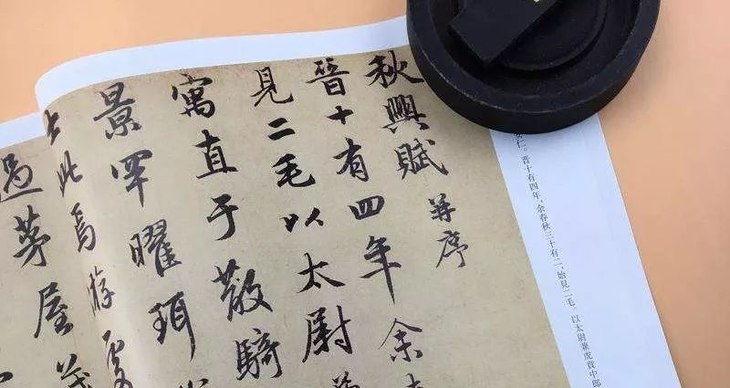 仁。晋十有四年，余春秋三十有二，始見二毛。以太尉掾兼虎賁中郎
秋興賦 并序
晉十有四年余
見二毛以太尉
寓直于散騎
景罕曜珥
士此焉游處
過茅屋茂